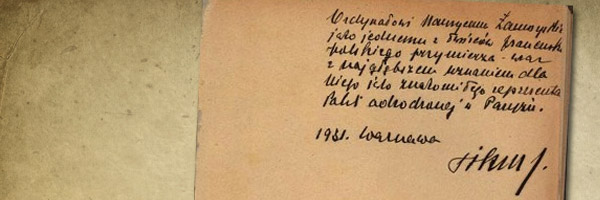 Ordynatowi Maurycemu Zamoyskie
jako jednemu z twórców francusko
polskiego przymierza - oraz
z najgłębszem uznaniem dla
Niego jako znakomitego reprezenta
Polski odrodzonej w Paryżu.
1931. Warszawa